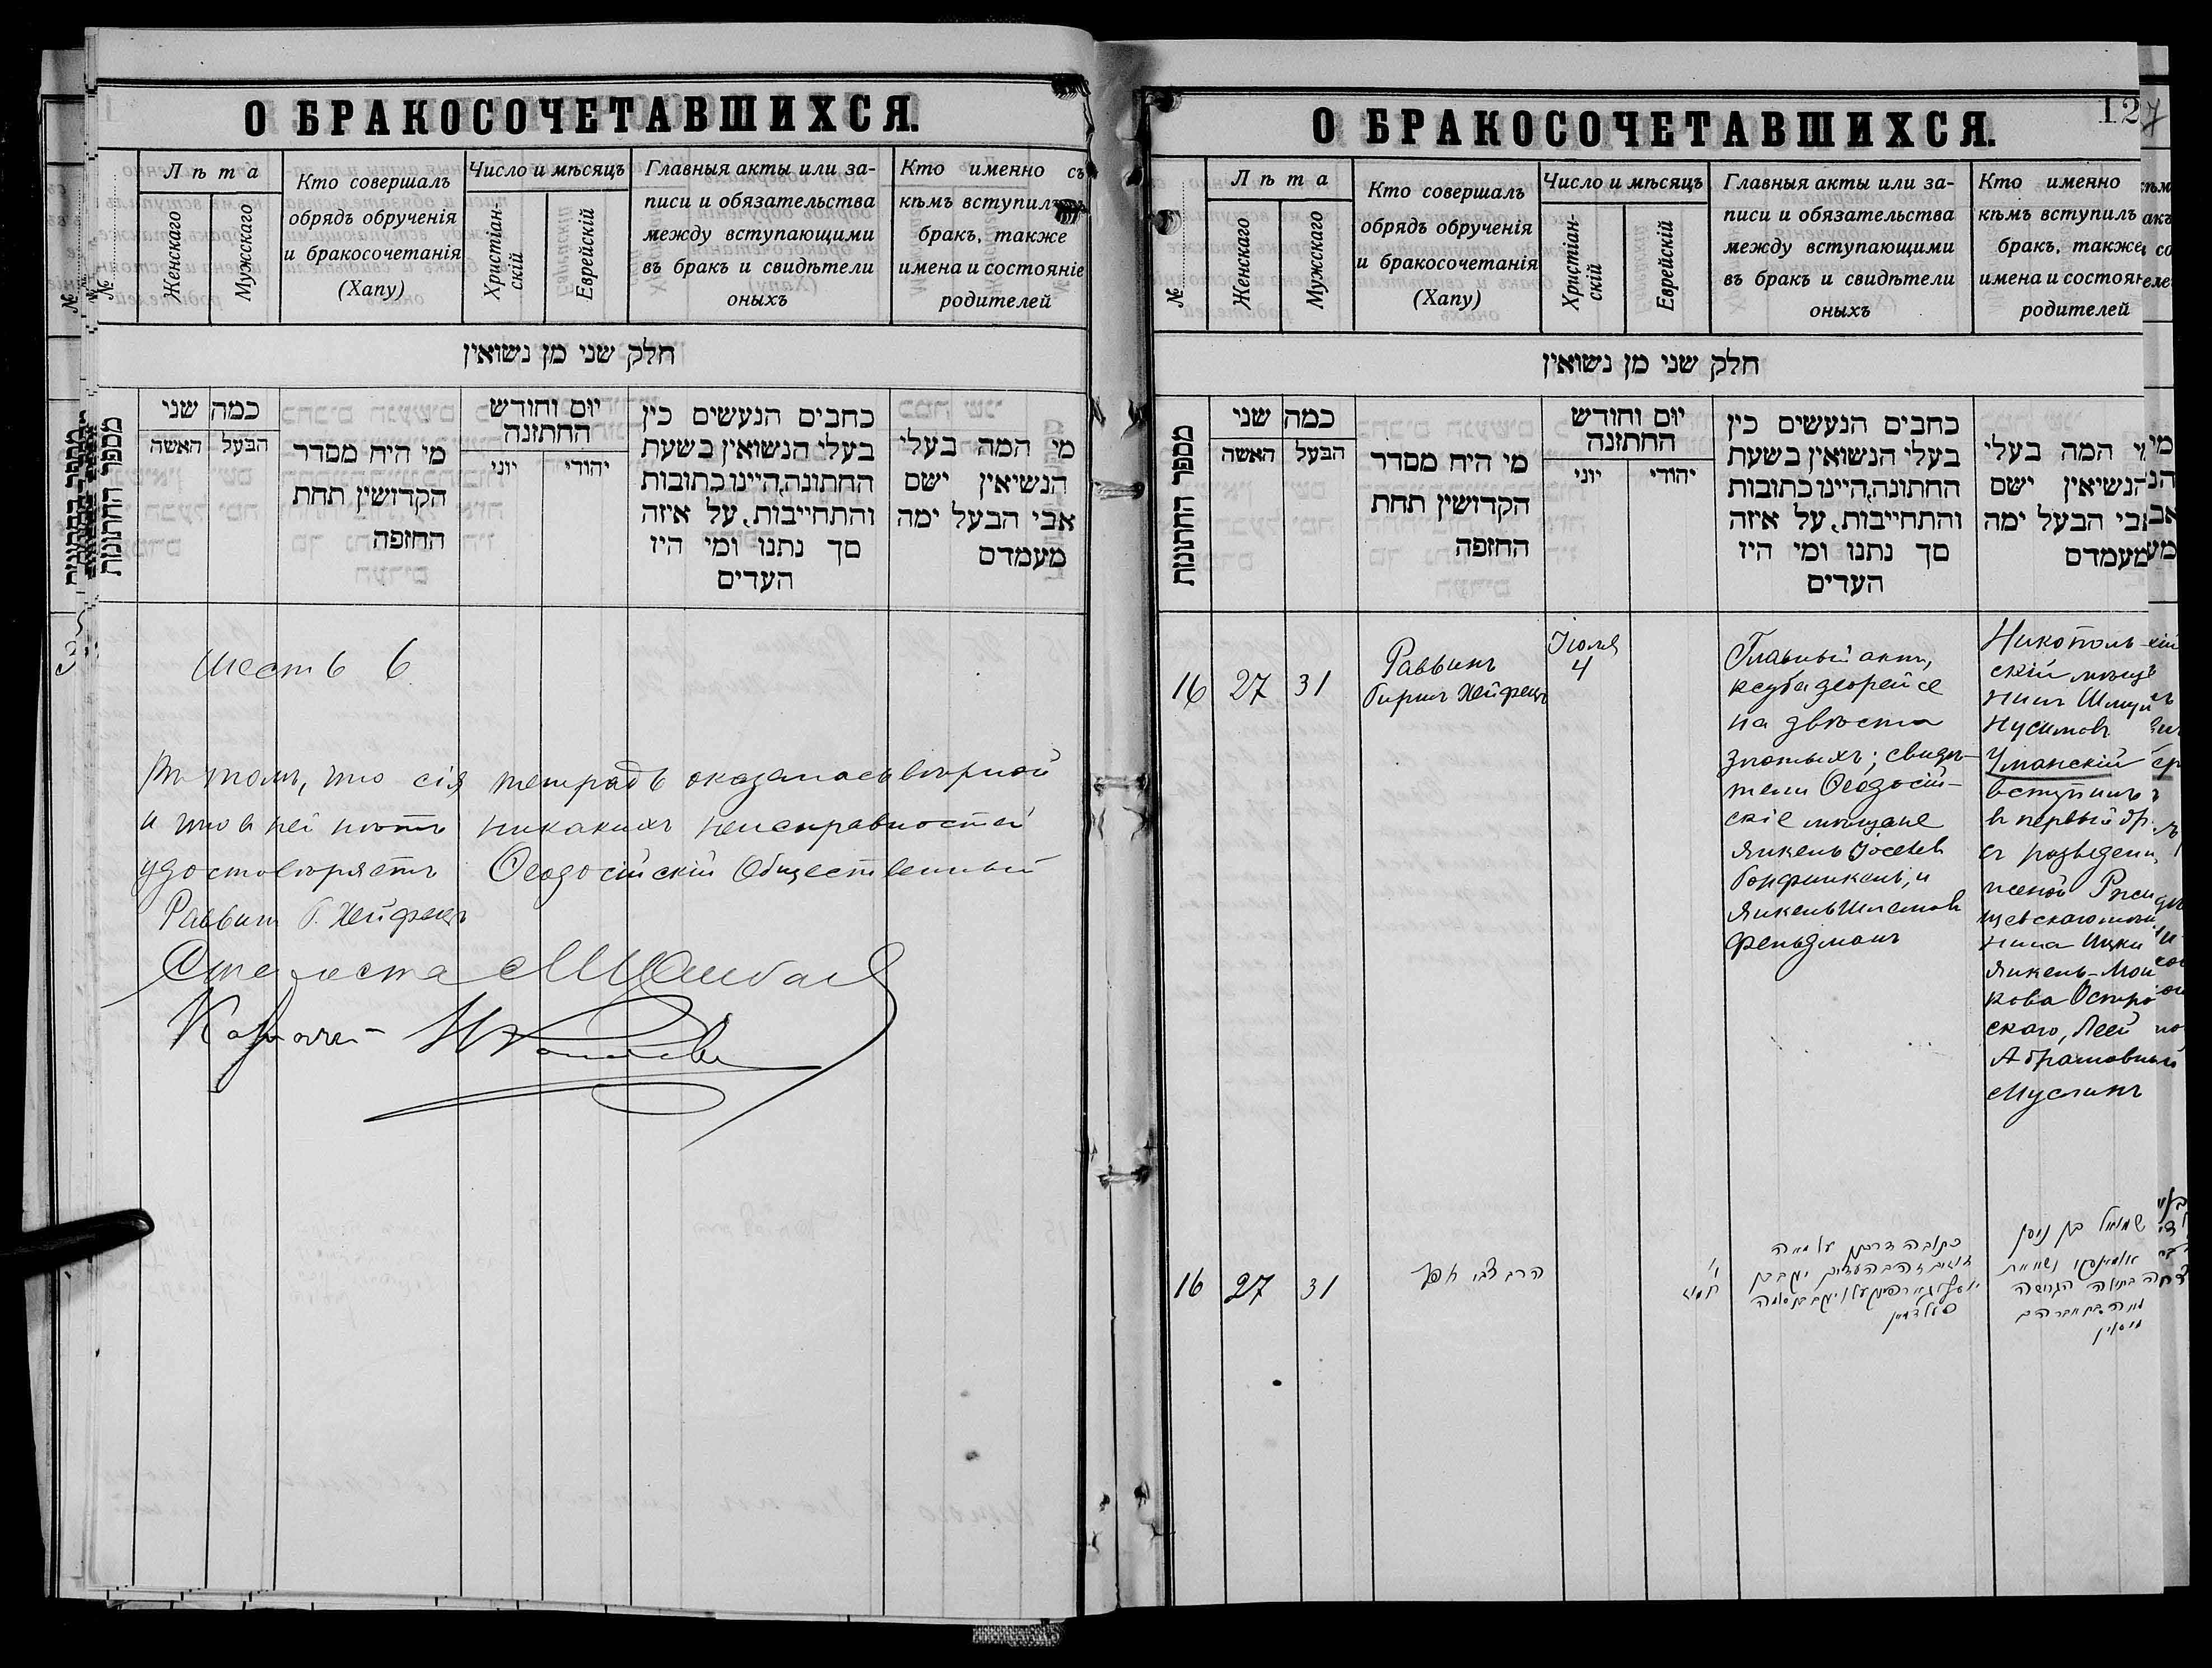 О БРАКОСОЧЕТАВШИХСЯ.
№
Лѣта
Женскаго
Мужскаго
Кто совершалъ
обрядъ обрученія
и бракосочетанія
(Хапу)
Число и мѣсяцъ
Христіан-
скій
Еврейскій
Главныя акты или за-
писи и обязательства
между вступающими
въ бракъ и свидѣтели
оныхъ
Кто именно съ
кѣмъ вступилъ
бракъ, также
имена и состояніе
родителей
חלק שני מן נשואין
מספר החתונות
כמה שני
האשה
הבעל
מי היח מסדר
הקדושין תחת
החופה
יום וחודש
החתונה
יוני
יהודי
כחבים הנעשים כין
בעלי הנשואין בשעת
החתונה, היינו כתובות
והתחייבות, על איזה
סך נתנו ומי היו
העדים
מי המה בעלי
הנשיאין ישם
אבי הבעל ימה
מעמדם
шесть 6
томъ, что сія тетрадь оказалась вѣрной
и что в ней нѣтъ никакихъ неисправностей
удостовѣряетъ Ѳеодосійскій Общественный
Раввинъ Б. Хейфецъ
Староста
Казначей
О БРАКОСОЧЕТАВШИХСЯ.
127
№
Лѣта
Женскаго
Мужскаго
Кто совершалъ
обрядъ обрученія
и бракосочетанія
(Хапу)
Число и мѣсяцъ
Христіан-
скій
Еврейскій
Главныя акты или за-
писи и обязательства
между вступающими
въ бракъ и свидѣтели
оныхъ
Кто именно
кѣмъ вступилъ
бракъ, также
имена и состоян
родителей
חלק שני מן נשואין
מספר החתונות
כמה שני
האשה
הבעל
מי היח מסדר
הקדושין תחת
החופה
יום וחודש
החתונה
יוני
יהודי
כחבים הנעשים כין
בעלי הנשואין בשעת
החתונה, היינו כתובות
והתחייבות, על איזה
סך נתנו ומי היו
העדים
המה בעלי
הנשיאין ישם
אבי הבעל ימה
מעמדם
16
27
31
Раввинъ
Гиршъ Хейфецъ
Іюля
4
Главный актъ,
ксуба деорейсе
на двѣсти
злотыхъ; свидѣ-
тели Ѳеодосій-
скіе мѣщане
Янкель Іосевъ
Гонфинкель, и
Янкель Шлемовъ
Фельдманъ
Никополь-
скій мѣща
нинъ Шмуи
Нусимовъ
Уманскій
вступилъ
в первый бр
съ разведен
женой
нина Ицки
Янкель-Мои
кова Остро
скаго, Леей
Абрамовной
Муслинъ
16
27
31
הרב צבי חפץ
תמוז
שמואל בן ניסן